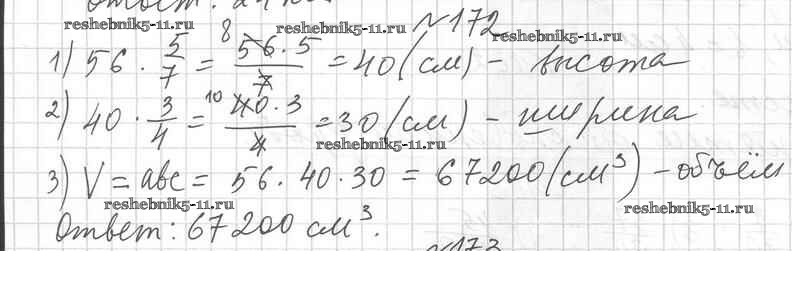 Ответ: 24
reshebnik5-11.ru reshebnik5-11.ru №172
reshebnik5-11.ru
1) 56 · 5/7 = 56 · 5 / 7 = 40 (см) - высота
8
2) 40 · 3/4 = 40 · 3 / 4 = 30 (см) - ширина
10
reshebnik5-11.ru
3) V = abc = 56 · 40 · 30 = 67200 (см³) - объём
reshebnik5-11.ru reshebnik5-11.ru
Ответ: 67200 см³.
№173